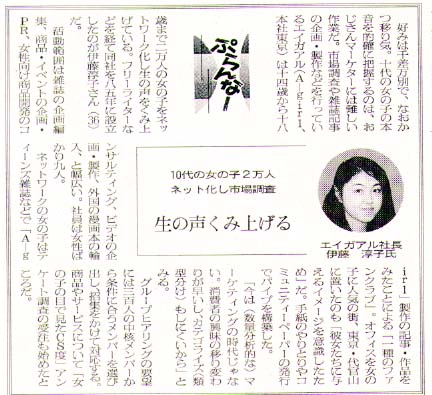 好みは千差万別で、なおか
つ移り気。十代の女の子の本
音を的確に把握するのは、お
じさんマーケターには難しい
作業だ。市場調査や雑誌記事
の企画・製作などを行ってい
るエイガアル（Ａｇｉｒｌ、
本社東京）は十四歳から十八
ぷらんなー
歳まで二万人の女の子をネッ
トワーク化し生の声をくみ上
げている。フリーライターな
どを経て同社を八五年に設立
したのが伊藤淳子さん（36）
だ。
活動範囲は雑誌の企画編
集、商品・イベントの企画・
ＰＲ、女性向け商品開発のコ
エイガアル社長
伊藤　淳子氏
10代の女の子２万人
ネット化し市場調査
生の声くみ上げる
ンサルティング、ビデオの企
画・製作、外国の漫画本の輸
入、と幅広い。社員は女性ば
かり九人。
ネットワークの女の子はテ
ィーンズ雑誌などで「Ａｇ
ｉｒｌ」製作の記事・作品を
みたことによる「一種のファ
ンクラブ」。オフィスを女の
子に人気の街、東京・代官山
に置いたのも「彼女たちに与
えるイメージを意識したた
め」だ。手紙のやりとりやコ
ミュニティーペーパーの発行
でパイプを構築した。
「今は（数量分析的な）マ
ーケティングの時代じゃな
い。消費者の興味の移り変わ
りが早いし、カテゴライズ（類
型分け）もしにくいから」と
みる。
グループヒアリングの要望
には三百人の中核メンバーか
ら条件に合うメンバーを選び
出し、招集をかけて対応する。
商品やサービスについて「女
の子の目で見たＣＳ度」アン
ケート調査の受注も始めたと
ころだ。